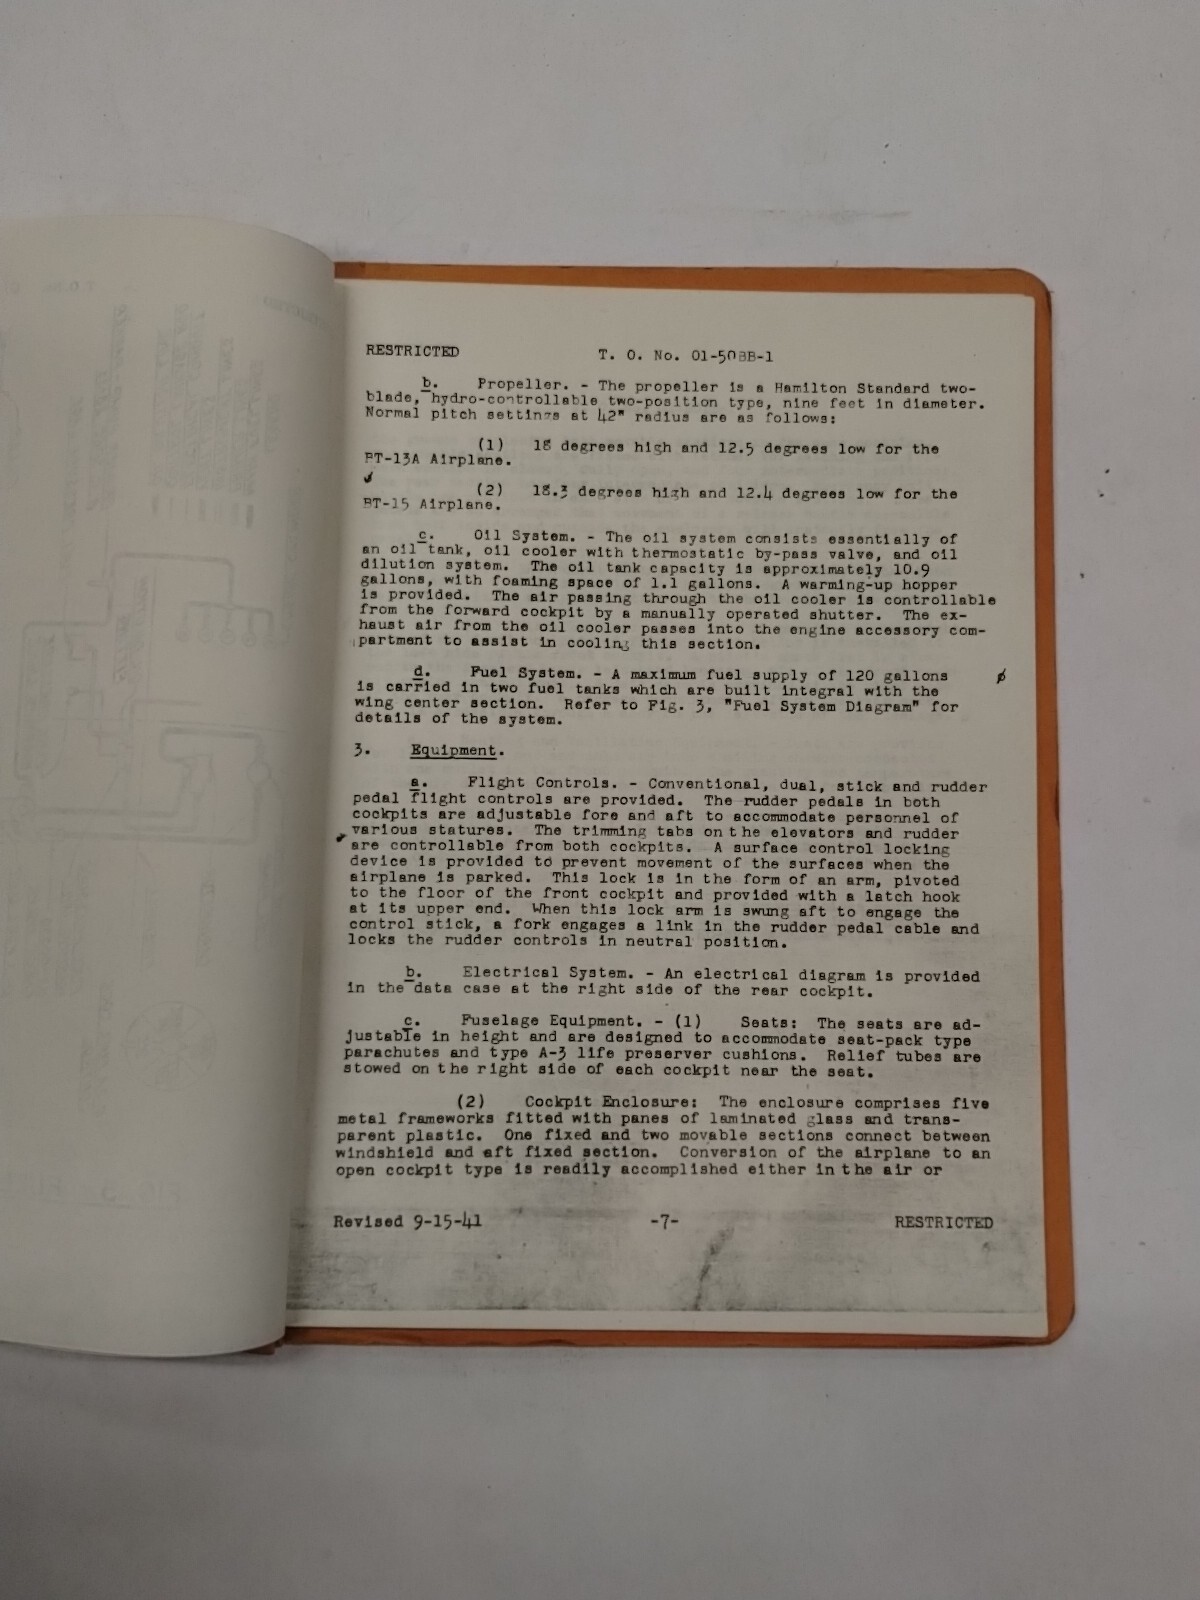 RESTRICTED T. O. No. 01-50BB-1
b. Propeller. - The propeller is a Hamilton Standard two-
blade, hydro-controllable two-position type, nine feet in diameter.
Normal pitch settings at 42" radius are as follows:
(1) 18 degrees high and 12.5 degrees low for the
BT-13A Airplane.
(2) 18.3 degrees high and 12.4 degrees low for the
BT-15 Airplane.
c. Oil System. - The oil system consists essentially of
an oil tank, oil cooler with thermostatic by-pass valve, and oil
dilution system. The oil tank capacity is approximately 10.9
gallons, with foaming space of 1.1 gallons. A warming-up hopper
is provided. The air passing through the oil cooler is controllable
from the forward cockpit by a manually operated shutter. The ex-
haust air from the oil cooler passes into the engine accessory com-
partment to assist in cooling this section.
d. Fuel System. - A maximum fuel supply of 120 gallons
is carried in two fuel tanks which are built integral with the
wing center section. Refer to Fig. 3, "Fuel System Diagram" for
details of the system.
3. Equipment.
a. Flight Controls. - Conventional, dual, stick and rudder
pedal flight controls are provided. The rudder pedals in both
cockpits are adjustable fore and aft to accommodate personnel of
various statures. The trimming tabs on the elevators and rudder
are controllable from both cockpits. A surface control locking
device is provided to prevent movement of the surfaces when the
airplane is parked. This lock is in the form of an arm, pivoted
to the floor of the front cockpit and provided with a latch hook
at its upper end. When this lock arm is swung aft to engage the
control stick, a fork engages a link in the rudder pedal cable and
locks the rudder controls in neutral position.
b. Electrical System. - An electrical diagram is provided
in the data case at the right side of the rear cockpit.
c. Fuselage Equipment. - (1) Seats: The seats are ad-
justable in height and are designed to accommodate seat-pack type
parachutes and type A-3 life preserver cushions. Relief tubes are
stowed on the right side of each cockpit near the seat.
(2) Cockpit Enclosure: The enclosure comprises five
metal frameworks fitted with panes of laminated glass and trans-
parent plastic. One fixed and two movable sections connect between
windshield and aft fixed section. Conversion of the airplane to an
open cockpit type is readily accomplished either in the air or
Revised 9-15-41 -7- RESTRICTED